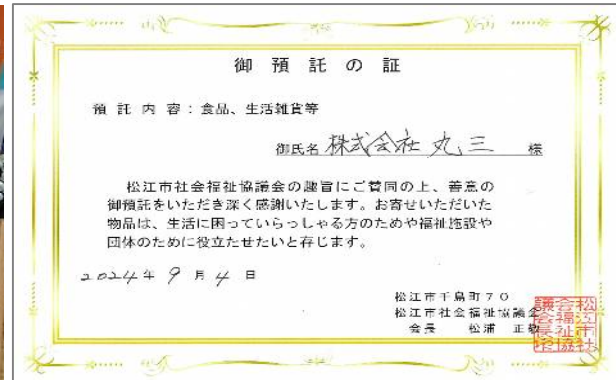 御 預 託 の 証
預 託 内 容：食品、生活雑貨等
御氏名 株式会社 丸三 様
松江市社会福祉協議会の趣旨にご賛同の上、善意の
御預託をいただき深く感謝いたします。お寄せいただいた
物品は、生活に困っていらっしゃる方のためや福祉施設や
団体のために役立たせたいと存じます。
2024年 9月 4日
松江市千鳥町70
松江市社会福祉協議会
会長 松浦 正敬